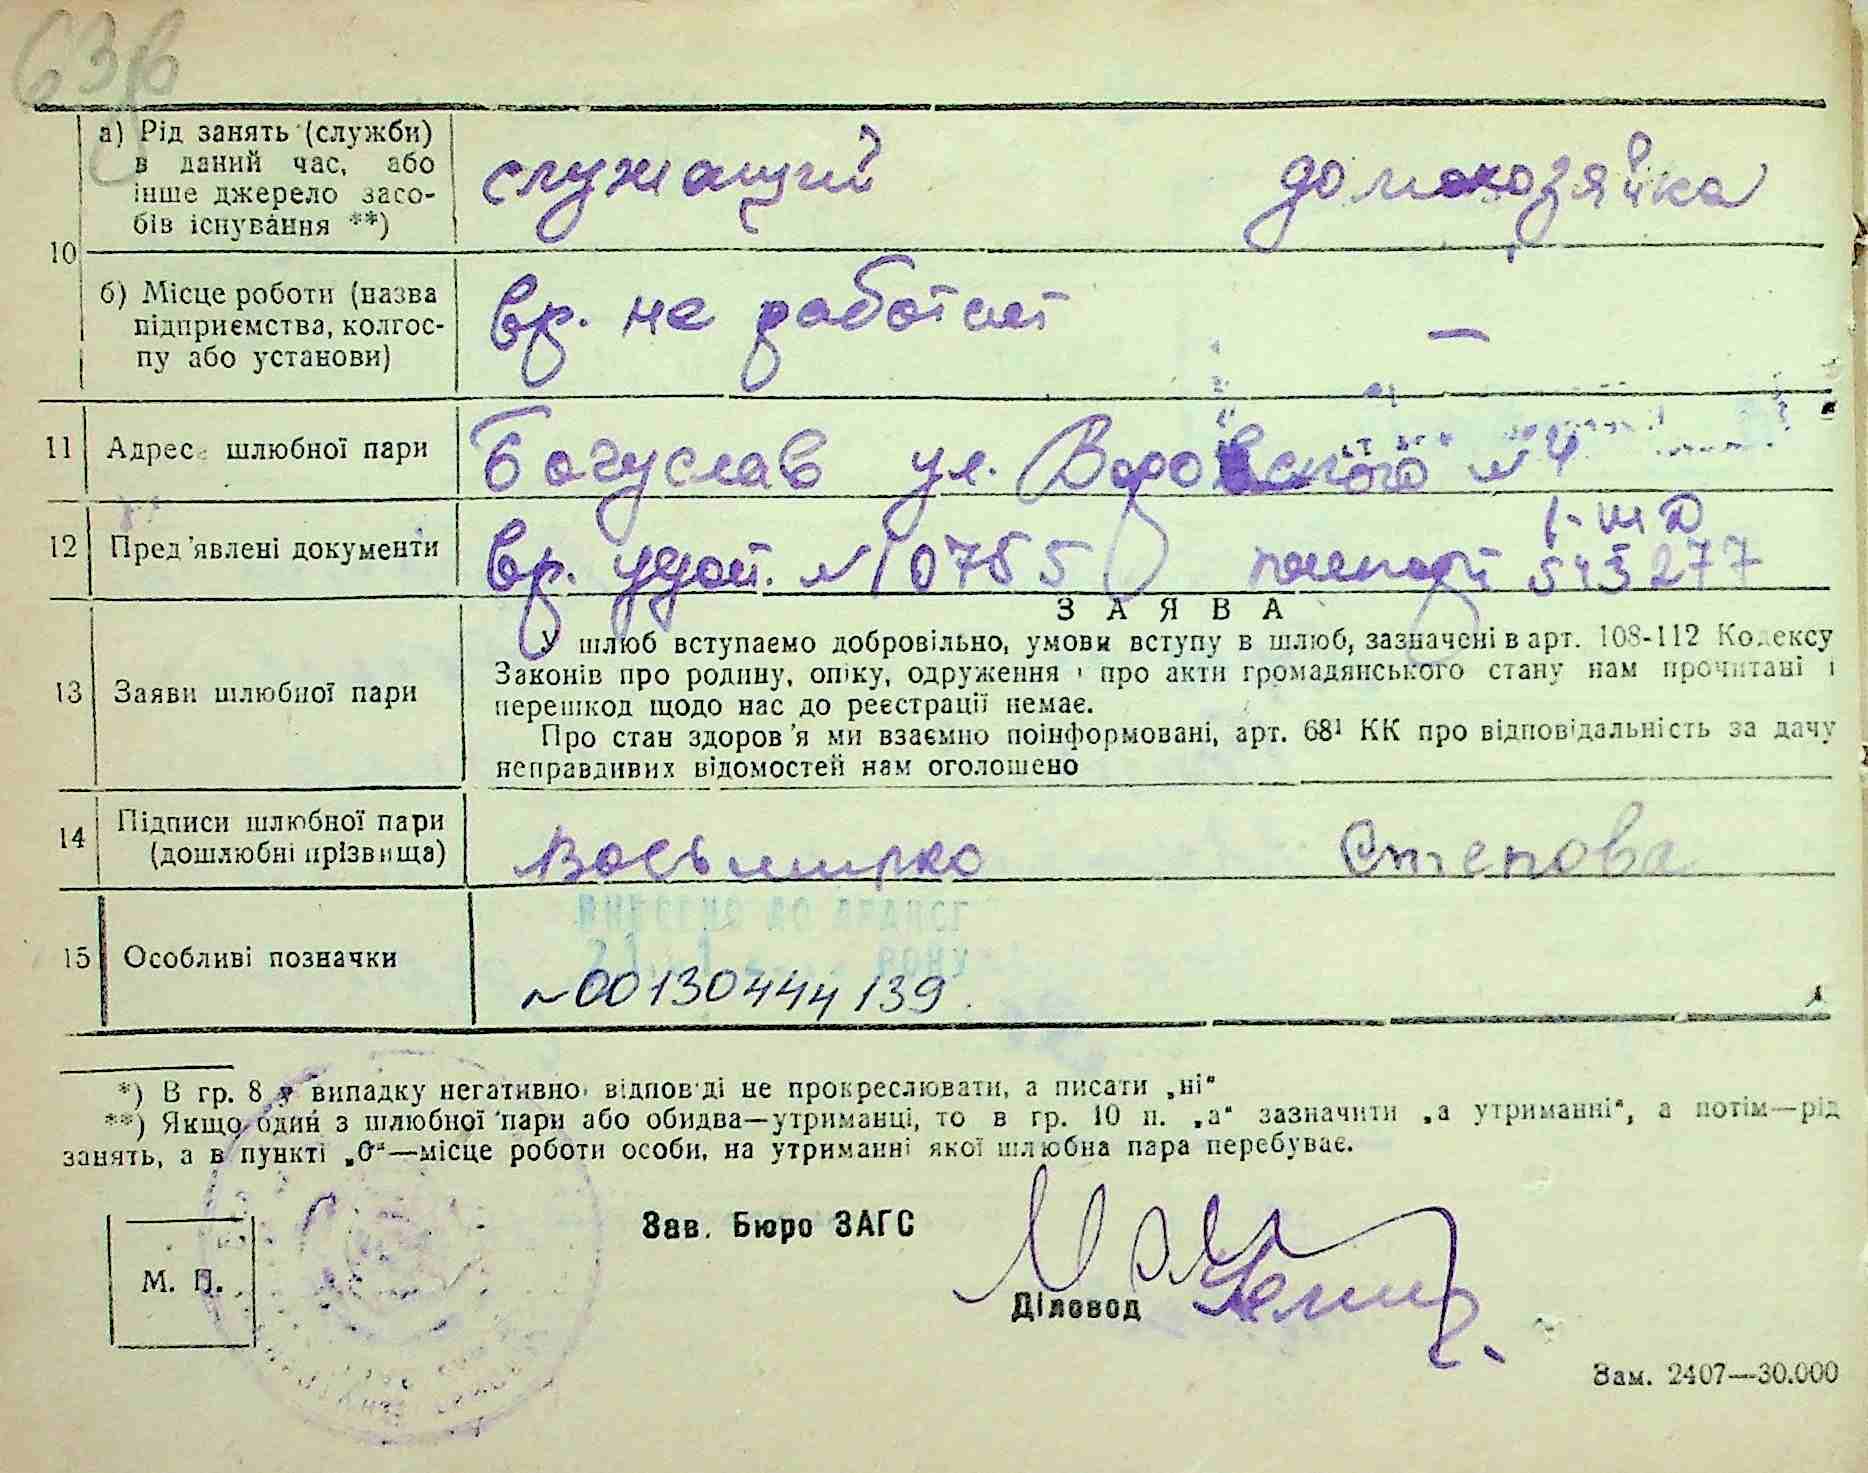 63 зв
а) Рід занять (служби)
в даний час, або
інше джерело засо-
бів існування **)
служащий домохозяйка
10
б) Місце роботи (назва
підприємства, колгос-
пу або установи)
вр. не работает —
11 Адреса шлюбної пари Богуслав ул. Воровского № 4
12 Пред'явлені документи вр. удост. № 0755 паспорт I-ШД 543277
ЗАЯВА
13 Заяви шлюбної пари
У шлюб вступаємо добровільно, умови вступу в шлюб, зазначені в арт. 108-112 Кодексу
Законів про родину, опіку, одруження і про акти громадянського стану нам прочитані і
перешкод щодо нас до реєстрації немає.
Про стан здоров'я ми взаємно поінформовані, арт. 68¹ КК про відповідальність за дачу
неправдивих відомостей нам оголошено
14 Підписи шлюбної пари
(дошлюбні прізвища)
Восьмирко Степова
15 Особливі позначки
ВНЕСЕНО ДО ДРАЦСГ
РОКУ
№00130444139
*) В гр. 8 у випадку негативної відповіді не прокреслювати, а писати „ні“
**) Якщо один з шлюбної пари або обидва—утриманці, то в гр. 10 п. „а“ зазначити „а утриманні“, а потім—рід
занять, а в пункті „б“—місце роботи особи, на утриманні якої шлюбна пара перебуває.
Зав. Бюро ЗАГС
М. П.
Діловод
Зам. 2407—30.000